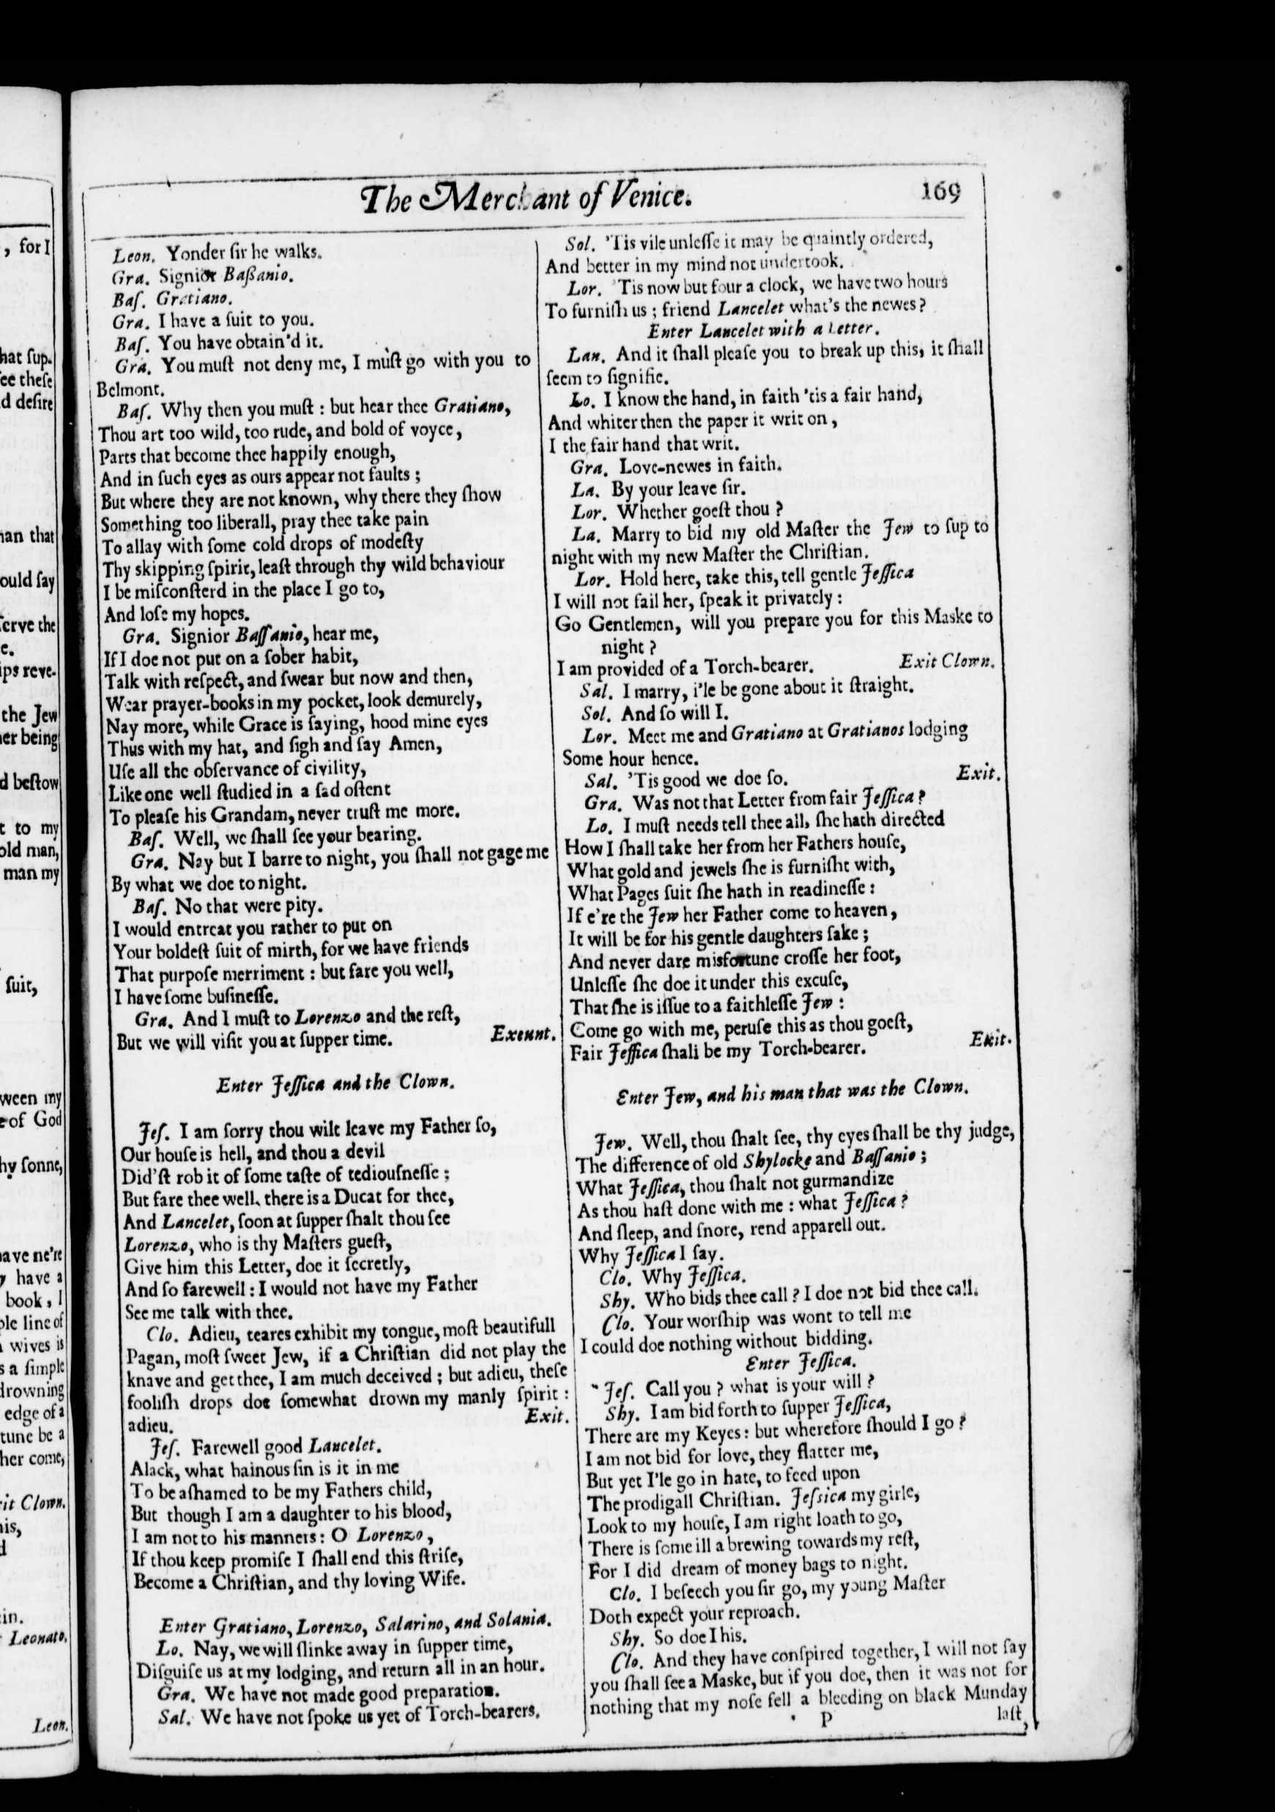 , for I
hat ſup.
ee theſe
d deſire
nan that
ould ſay
ſerve the
e.
ips reve-
the Jew
her being
d beſtow
t to my
old man,
man my
ſuit,
ween my
of God
hy ſonne,
ave ne're
have a
book, I
ple line of
wives is
s a ſimple
drowning
edge of a
tune be a
her come,
it Clown.
his,
d
in.
Leonato.
Leon.
The Merchant of Venice.
169
Leon. Yonder ſir he walks.
Gra. Signior Baßanio.
Baſ. Gratiano.
Gra. I have a ſuit to you.
Baſ. You have obtain'd it.
Gra. You muſt not deny me, I muſt go with you to
Belmont.
Baſ. Why then you muſt : but hear thee Gratiano,
Thou art too wild, too rude, and bold of voyce,
Parts that become thee happily enough,
And in ſuch eyes as ours appear not faults ;
But where they are not known, why there they ſhow
Something too liberall, pray thee take pain
To allay with ſome cold drops of modeſty
Thy skipping ſpirit, leaſt through thy wild behaviour
I be miſconſterd in the place I go to,
And loſe my hopes.
Gra. Signior Baſſanio, hear me,
If I doe not put on a ſober habit,
Talk with reſpect, and ſwear but now and then,
Wear prayer-books in my pocket, look demurely,
Nay more, while Grace is ſaying, hood mine eyes
Thus with my hat, and ſigh and ſay Amen,
Uſe all the obſervance of civility,
Like one well ſtudied in a ſad oſtent
To pleaſe his Grandam, never truſt me more.
Baſ. Well, we ſhall ſee your bearing.
Gra. Nay but I barre to night, you ſhall not gage me
By what we doe to night.
Baſ. No that were pity.
I would entreat you rather to put on
Your boldeſt ſuit of mirth, for we have friends
That purpoſe merriment : but fare you well,
I have ſome buſineſſe.
Gra. And I muſt to Lorenzo and the reſt,
But we will viſit you at ſupper time. Exeunt.
Enter Jeſſica and the Clown.
Jeſ. I am ſorry thou wilt leave my Father ſo,
Our houſe is hell, and thou a devil
Did'ſt rob it of ſome taſte of tediouſneſſe ;
But fare thee well, there is a Ducat for thee,
And Lancelet, ſoon at ſupper ſhalt thou ſee
Lorenzo, who is thy Maſters gueſt,
Give him this Letter, doe it ſecretly,
And ſo farewell : I would not have my Father
See me talk with thee.
Clo. Adieu, teares exhibit my tongue, moſt beautifull
Pagan, moſt ſweet Jew, if a Chriſtian did not play the
knave and get thee, I am much deceived ; but adieu, theſe
fooliſh drops doe ſomewhat drown my manly ſpirit :
adieu. Exit.
Jeſ. Farewell good Lancelet.
Alack, what hainous ſin is it in me
To be aſhamed to be my Fathers child,
But though I am a daughter to his blood,
I am not to his manners: O Lorenzo,
If thou keep promiſe I ſhall end this ſtriſe,
Become a Chriſtian, and thy loving Wife.
Enter Gratiano, Lorenzo, Salarino, and Solania.
Lo. Nay, we will ſlinke away in ſupper time,
Diſguiſe us at my lodging, and return all in an hour.
Gra. We have not made good preparation.
Sal. We have not ſpoke us yet of Torch-bearers.
Sol. 'Tis vile unleſſe it may be quaintly ordered,
And better in my mind not undertook.
Lor. 'Tis now but four a clock, we have two hours
To furniſh us ; friend Lancelet what's the newes?
Enter Lancelet with a Letter.
Lan. And it ſhall pleaſe you to break up this, it ſhall
ſeem to ſignifie.
Lo. I know the hand, in faith 'tis a fair hand,
And whiter then the paper it writ on,
I the fair hand that writ.
Gra. Love-newes in faith.
La. By your leave ſir.
Lor. Whether goeſt thou ?
La. Marry to bid my old Maſter the Jew to ſup to
night with my new Maſter the Chriſtian.
Lor. Hold here, take this, tell gentle Jeſſica
I will not fail her, ſpeak it privately :
Go Gentlemen, will you prepare you for this Maske to
night ?
I am provided of a Torch-bearer. Exit Clown.
Sal. I marry, i'le be gone about it ſtraight.
Sol. And ſo will I.
Lor. Meet me and Gratiano at Gratianos lodging
Some hour hence.
Sal. 'Tis good we doe ſo. Exit.
Gra. Was not that Letter from fair Jeſſica?
Lo. I muſt needs tell thee all, ſhe hath directed
How I ſhall take her from her Fathers houſe,
What gold and jewels ſhe is furniſht with,
What Pages ſuit ſhe hath in readineſſe :
If e're the Jew her Father come to heaven,
It will be for his gentle daughters ſake ;
And never dare misfortune croſſe her foot,
Unleſſe ſhe doe it under this excuſe,
That ſhe is iſſue to a faithleſſe Jew :
Come go with me, peruſe this as thou goeſt,
Fair Jeſſica ſhall be my Torch-bearer. Exit.
Enter Jew, and his man that was the Clown.
Jew. Well, thou ſhalt ſee, thy eyes ſhall be thy judge,
The difference of old Shylocke and Baſſanio ;
What Jeſſica, thou ſhalt not gurmandize
As thou haſt done with me : what Jeſſica?
And ſleep, and ſnore, rend apparell out.
Why Jeſſica I ſay.
Clo. Why Jeſſica.
Shy. Who bids thee call ? I doe not bid thee call.
Clo. Your worſhip was wont to tell me
I could doe nothing without bidding.
Enter Jeſſica.
Jeſ. Call you ? what is your will ?
Shy. I am bid forth to ſupper Jeſſica,
There are my Keyes : but wherefore ſhould I go ?
I am not bid for love, they flatter me,
But yet I'le go in hate, to feed upon
The prodigall Chriſtian. Jeſsica my girle,
Look to my houſe, I am right loath to go,
There is ſome ill a brewing towards my reſt,
For I did dream of money bags to night.
Clo. I beſeech you ſir go, my young Maſter
Doth expect your reproach.
Shy. So doe I his.
Clo. And they have conſpired together, I will not ſay
you ſhall ſee a Maske, but if you doe, then it was not for
nothing that my noſe fell a bleeding on black Munday
P
laſt,